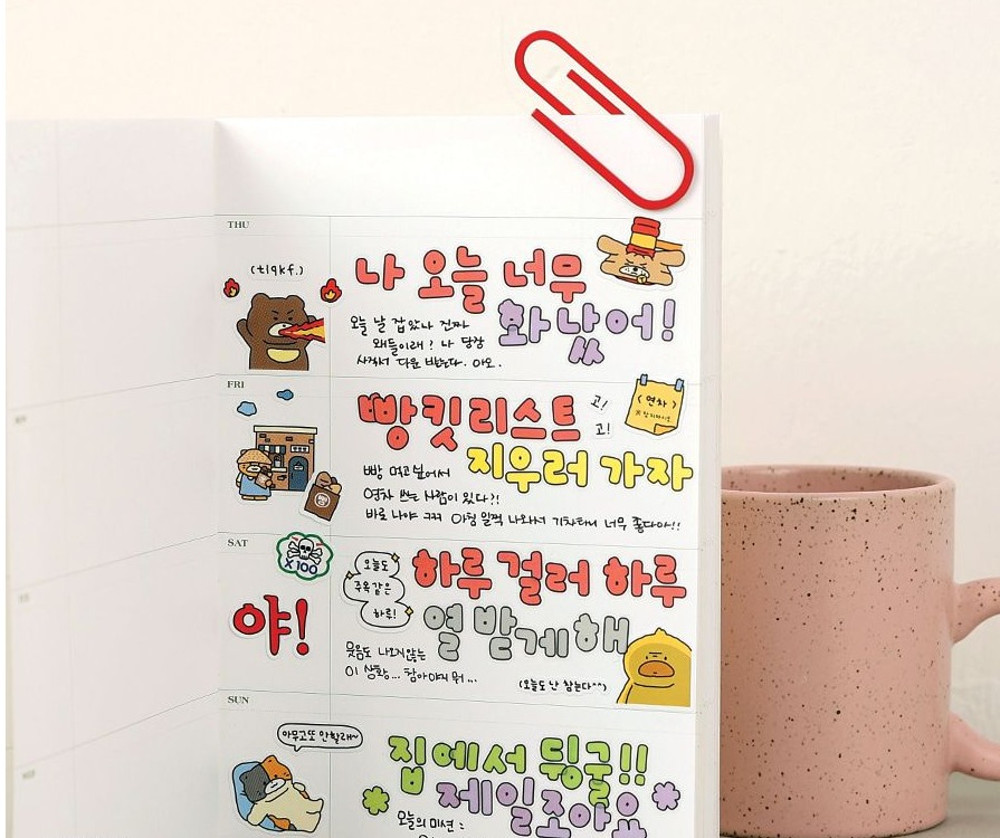 THU
(tlqkf.)
나 오늘 너무
화났어!
오늘 날 잡았나 진짜
왜들이래? 나 당장
사직서 다운 받는다. 아오.
FRI
빵킷리스트
고!
고!
(연차)
지우러 가자
빵 먹고싶어서
연차 쓰는 사람이 있다?!
바로 나야 ㅋㅋ 아침 일찍 나와서 기차타니 너무 좋다아!!
SAT
X100
야!
오늘도
주옥같은
하루!
하루 걸러 하루
열받게해
웃음도 나오지않는
이 상황... 참아야지 뭐...
(오늘도 난 참는다^^)
SUN
아무고또 안할래~
집에서 뒹굴!!
제일조아요
오늘의 미션 :